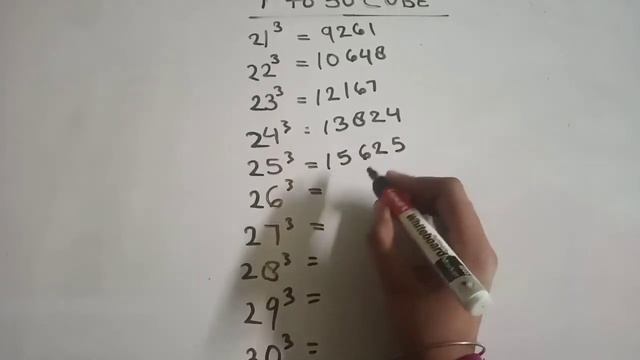 1 TO 30 CUBE
21³ = 9261
22³ = 10648
23³ = 12167
24³ = 13824
25³ = 15625
26³ =
27³ =
28³ =
29³ =
30³ =
Whiteboard